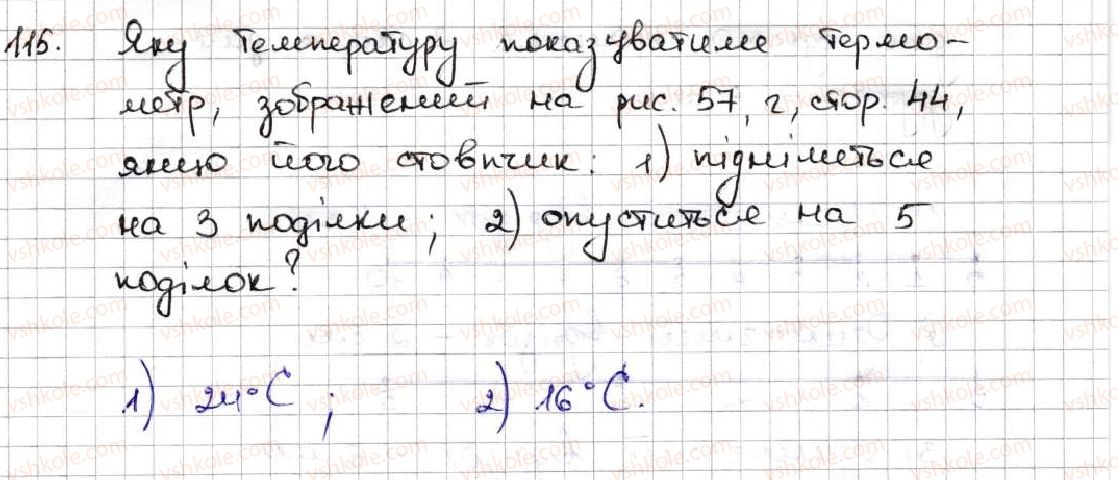 115. Яку температуру показуватиме термо-
метр, зображений на рис. 57, г, стор. 44,
якщо його стовпчик: 1) підніметься
на 3 поділки; 2) опуститься на 5
поділок?
1) 24°C; 2) 16°C.